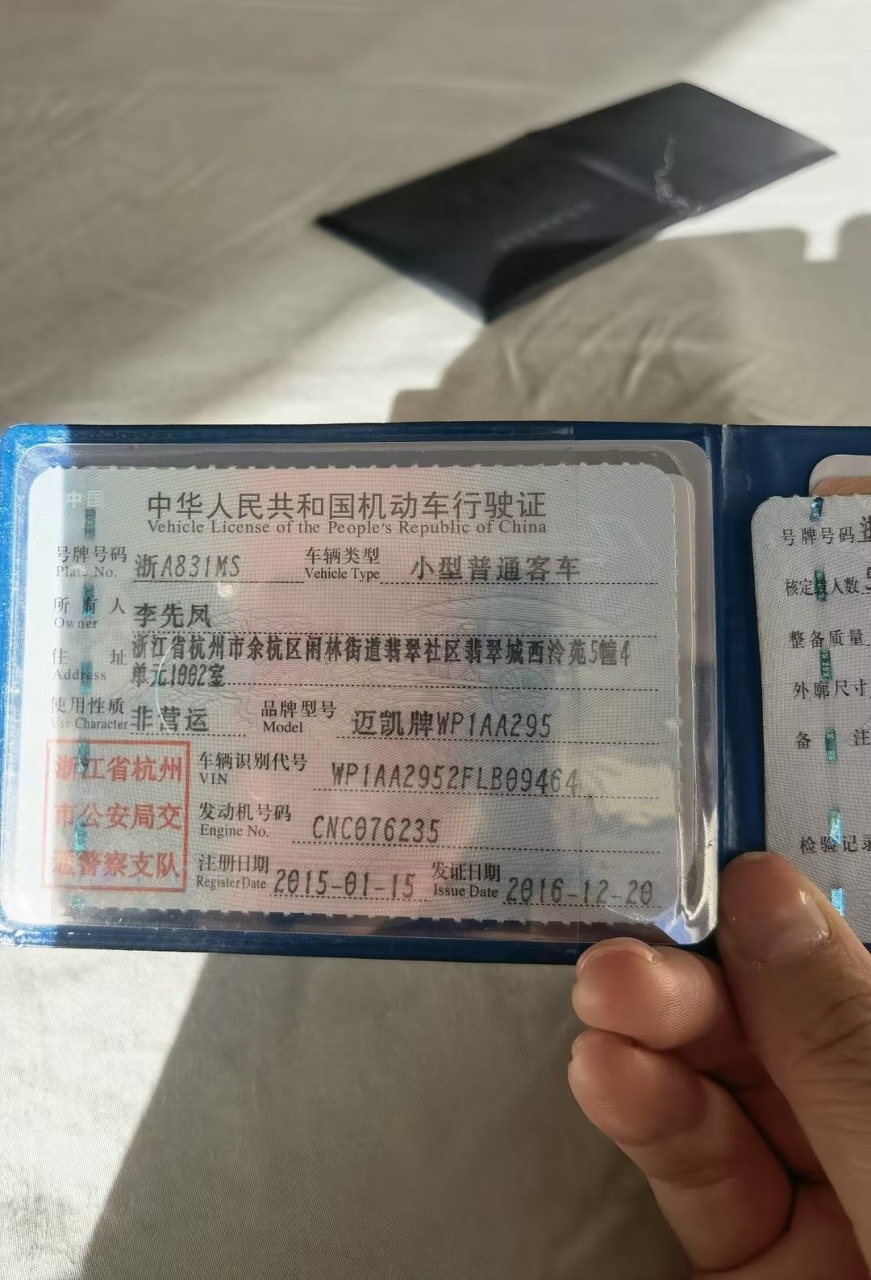 中国
中华人民共和国机动车行驶证
Vehicle License of the People's Republic of China
号牌号码 浙A831MS 车辆类型 小型普通客车
Plate No. Vehicle Type
所有人 李先凤
Owner
住址 浙江省杭州市余杭区闲林街道翡翠社区翡翠城西泠苑5幢4
单元1002室
Address
使用性质 非营运 品牌型号 迈凯牌WP1AA295
Use Character Model
浙江省杭州
市公安局交
通警察支队
车辆识别代号 WP1AA2952FLB09464
VIN
发动机号码 CNC076235
Engine No.
注册日期 2015-01-15 发证日期 2016-12-20
Register Date Issue Date
号牌号码 浙
核定载人数 5
整备质量
外廓尺寸
备注
检验记录